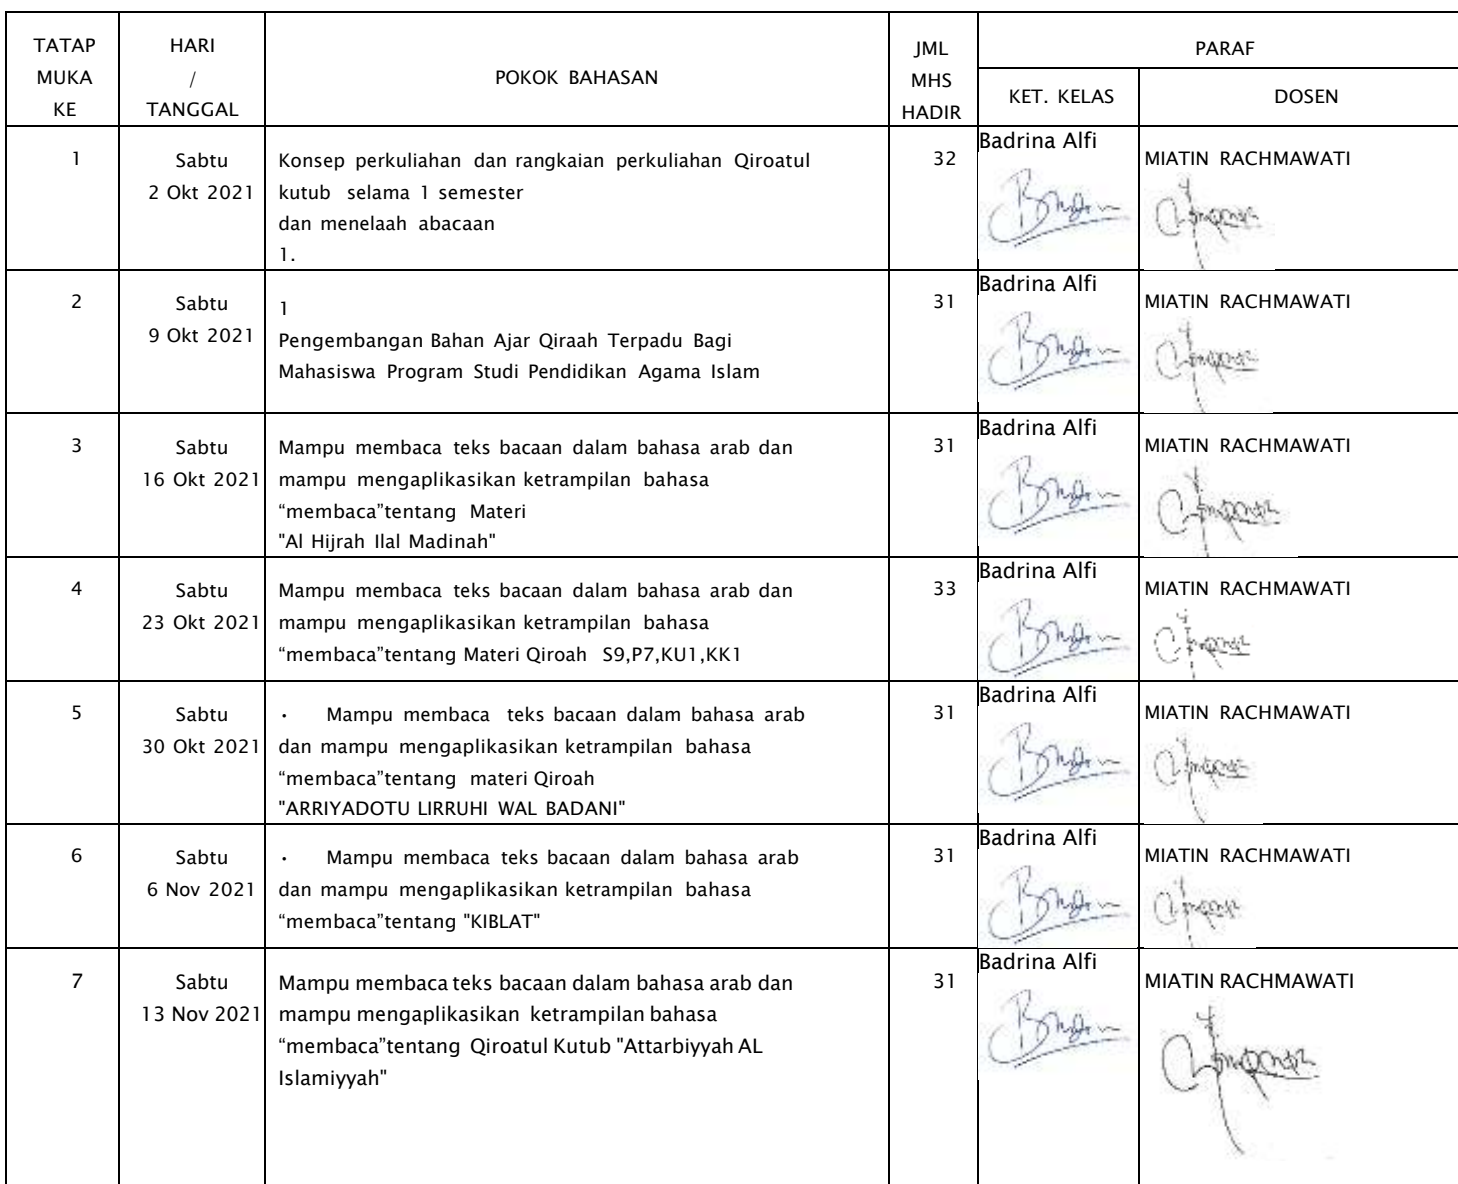 TATAP MUKA KE
HARI / TANGGAL
POKOK BAHASAN
JML MHS HADIR
PARAF
KET. KELAS
DOSEN
1
Sabtu
2 Okt 2021
Konsep perkuliahan dan rangkaian perkuliahan Qiroatul
kutub selama 1 semester
dan menelaah abacaan
1.
32
Badrina Alfi
MIATIN RACHMAWATI
2
Sabtu
9 Okt 2021
1
Pengembangan Bahan Ajar Qiraah Terpadu Bagi
Mahasiswa Program Studi Pendidikan Agama Islam
31
Badrina Alfi
MIATIN RACHMAWATI
3
Sabtu
16 Okt 2021
Mampu membaca teks bacaan dalam bahasa arab dan
mampu mengaplikasikan ketrampilan bahasa
“membaca”tentang Materi
"Al Hijrah Ilal Madinah"
31
Badrina Alfi
MIATIN RACHMAWATI
4
Sabtu
23 Okt 2021
Mampu membaca teks bacaan dalam bahasa arab dan
mampu mengaplikasikan ketrampilan bahasa
“membaca”tentang Materi Qiroah S9,P7,KU1,KK1
33
Badrina Alfi
MIATIN RACHMAWATI
5
Sabtu
30 Okt 2021
• Mampu membaca teks bacaan dalam bahasa arab
dan mampu mengaplikasikan ketrampilan bahasa
“membaca”tentang materi Qiroah
"ARRIYADOTU LIRRUHI WAL BADANI"
31
Badrina Alfi
MIATIN RACHMAWATI
6
Sabtu
6 Nov 2021
• Mampu membaca teks bacaan dalam bahasa arab
dan mampu mengaplikasikan ketrampilan bahasa
“membaca”tentang "KIBLAT"
31
Badrina Alfi
MIATIN RACHMAWATI
7
Sabtu
13 Nov 2021
Mampu membaca teks bacaan dalam bahasa arab dan
mampu mengaplikasikan ketrampilan bahasa
“membaca”tentang Qiroatul Kutub "Attarbiyyah AL
Islamiyyah"
31
Badrina Alfi
MIATIN RACHMAWATI